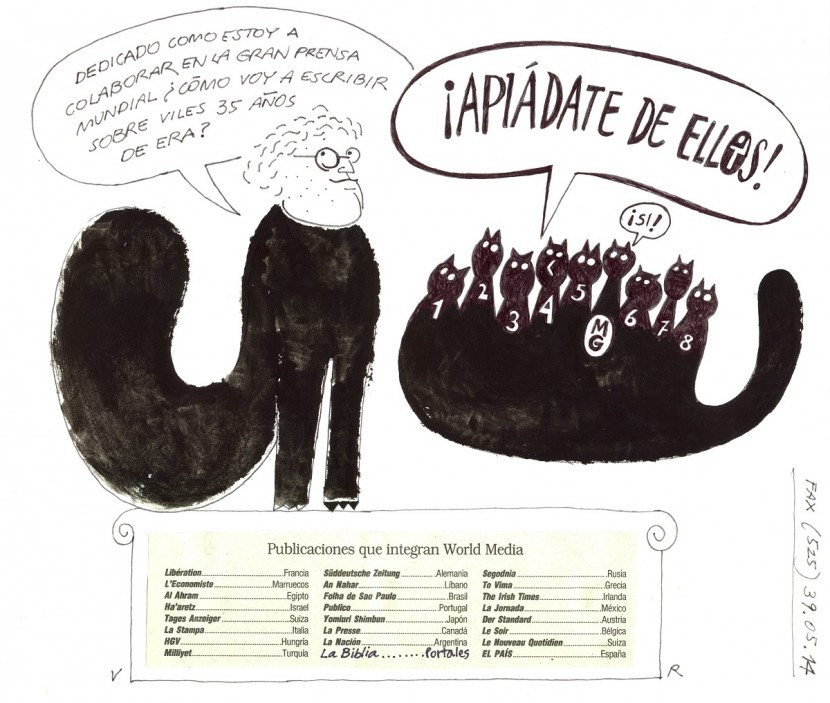 DEDICADO COMO ESTOY A
COLABORAR EN LA GRAN PRENSA
MUNDIAL ¿CÓMO VOY A ESCRIBIR
SOBRE VILES 35 AÑOS
DE ERA?
¡APIÁDATE DE ELL@S!
¡SI!
1
2
3
4
5
MG
6
7
8
Publicaciones que integran World Media
Libération Francia
L'Economiste Marruecos
Al Ahram Egipto
Ha'aretz Israel
Tages Anzeiger Suiza
La Stampa Italia
HGV Hungría
Milliyet Turquía
Süddeutsche Zeitung Alemania
An Nahar Líbano
Folha de Sao Paulo Brasil
Publico Portugal
Yomiuri Shimbun Japón
La Presse Canadá
La Nación Argentina
La Biblia........Portales
Segodnia Rusia
To Vima Grecia
The Irish Times Irlanda
La Jornada México
Der Standard Austria
Le Soir Bélgica
Le Nouveau Quotidien Suiza
EL PAÍS España
V R
FAX (525) 39.05.14